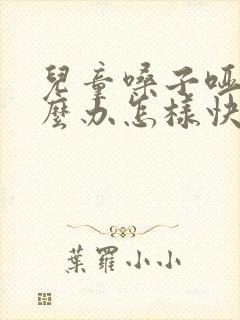 兒童嗓子啞
麼办怎樣快
葉羅小小